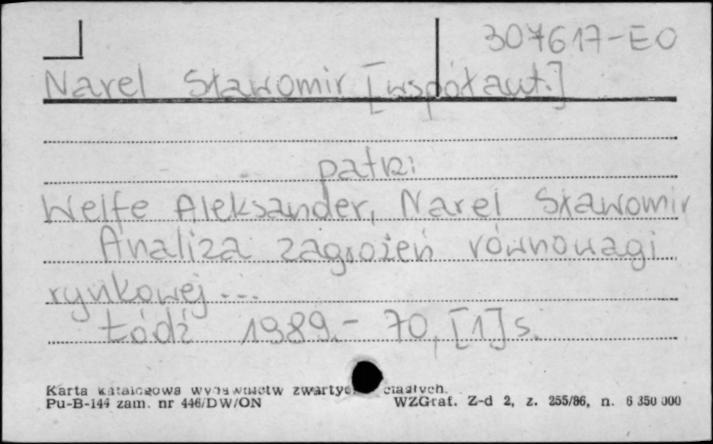 307617-EO
Narel Sławomir [współaut.]
patrz:
Welfe Aleksander, Narel Sławomir
Analiza zagrożeń równowagi
rynkowej ...
Łódź 1989.- 70, [1] s.
Karta katalogowa wydawnictw zwartych ciągłych.
Pu-B-144 zam. nr 446/DW/ON WZGraf. Z-d 2, z. 255/86, n. 6 350 000